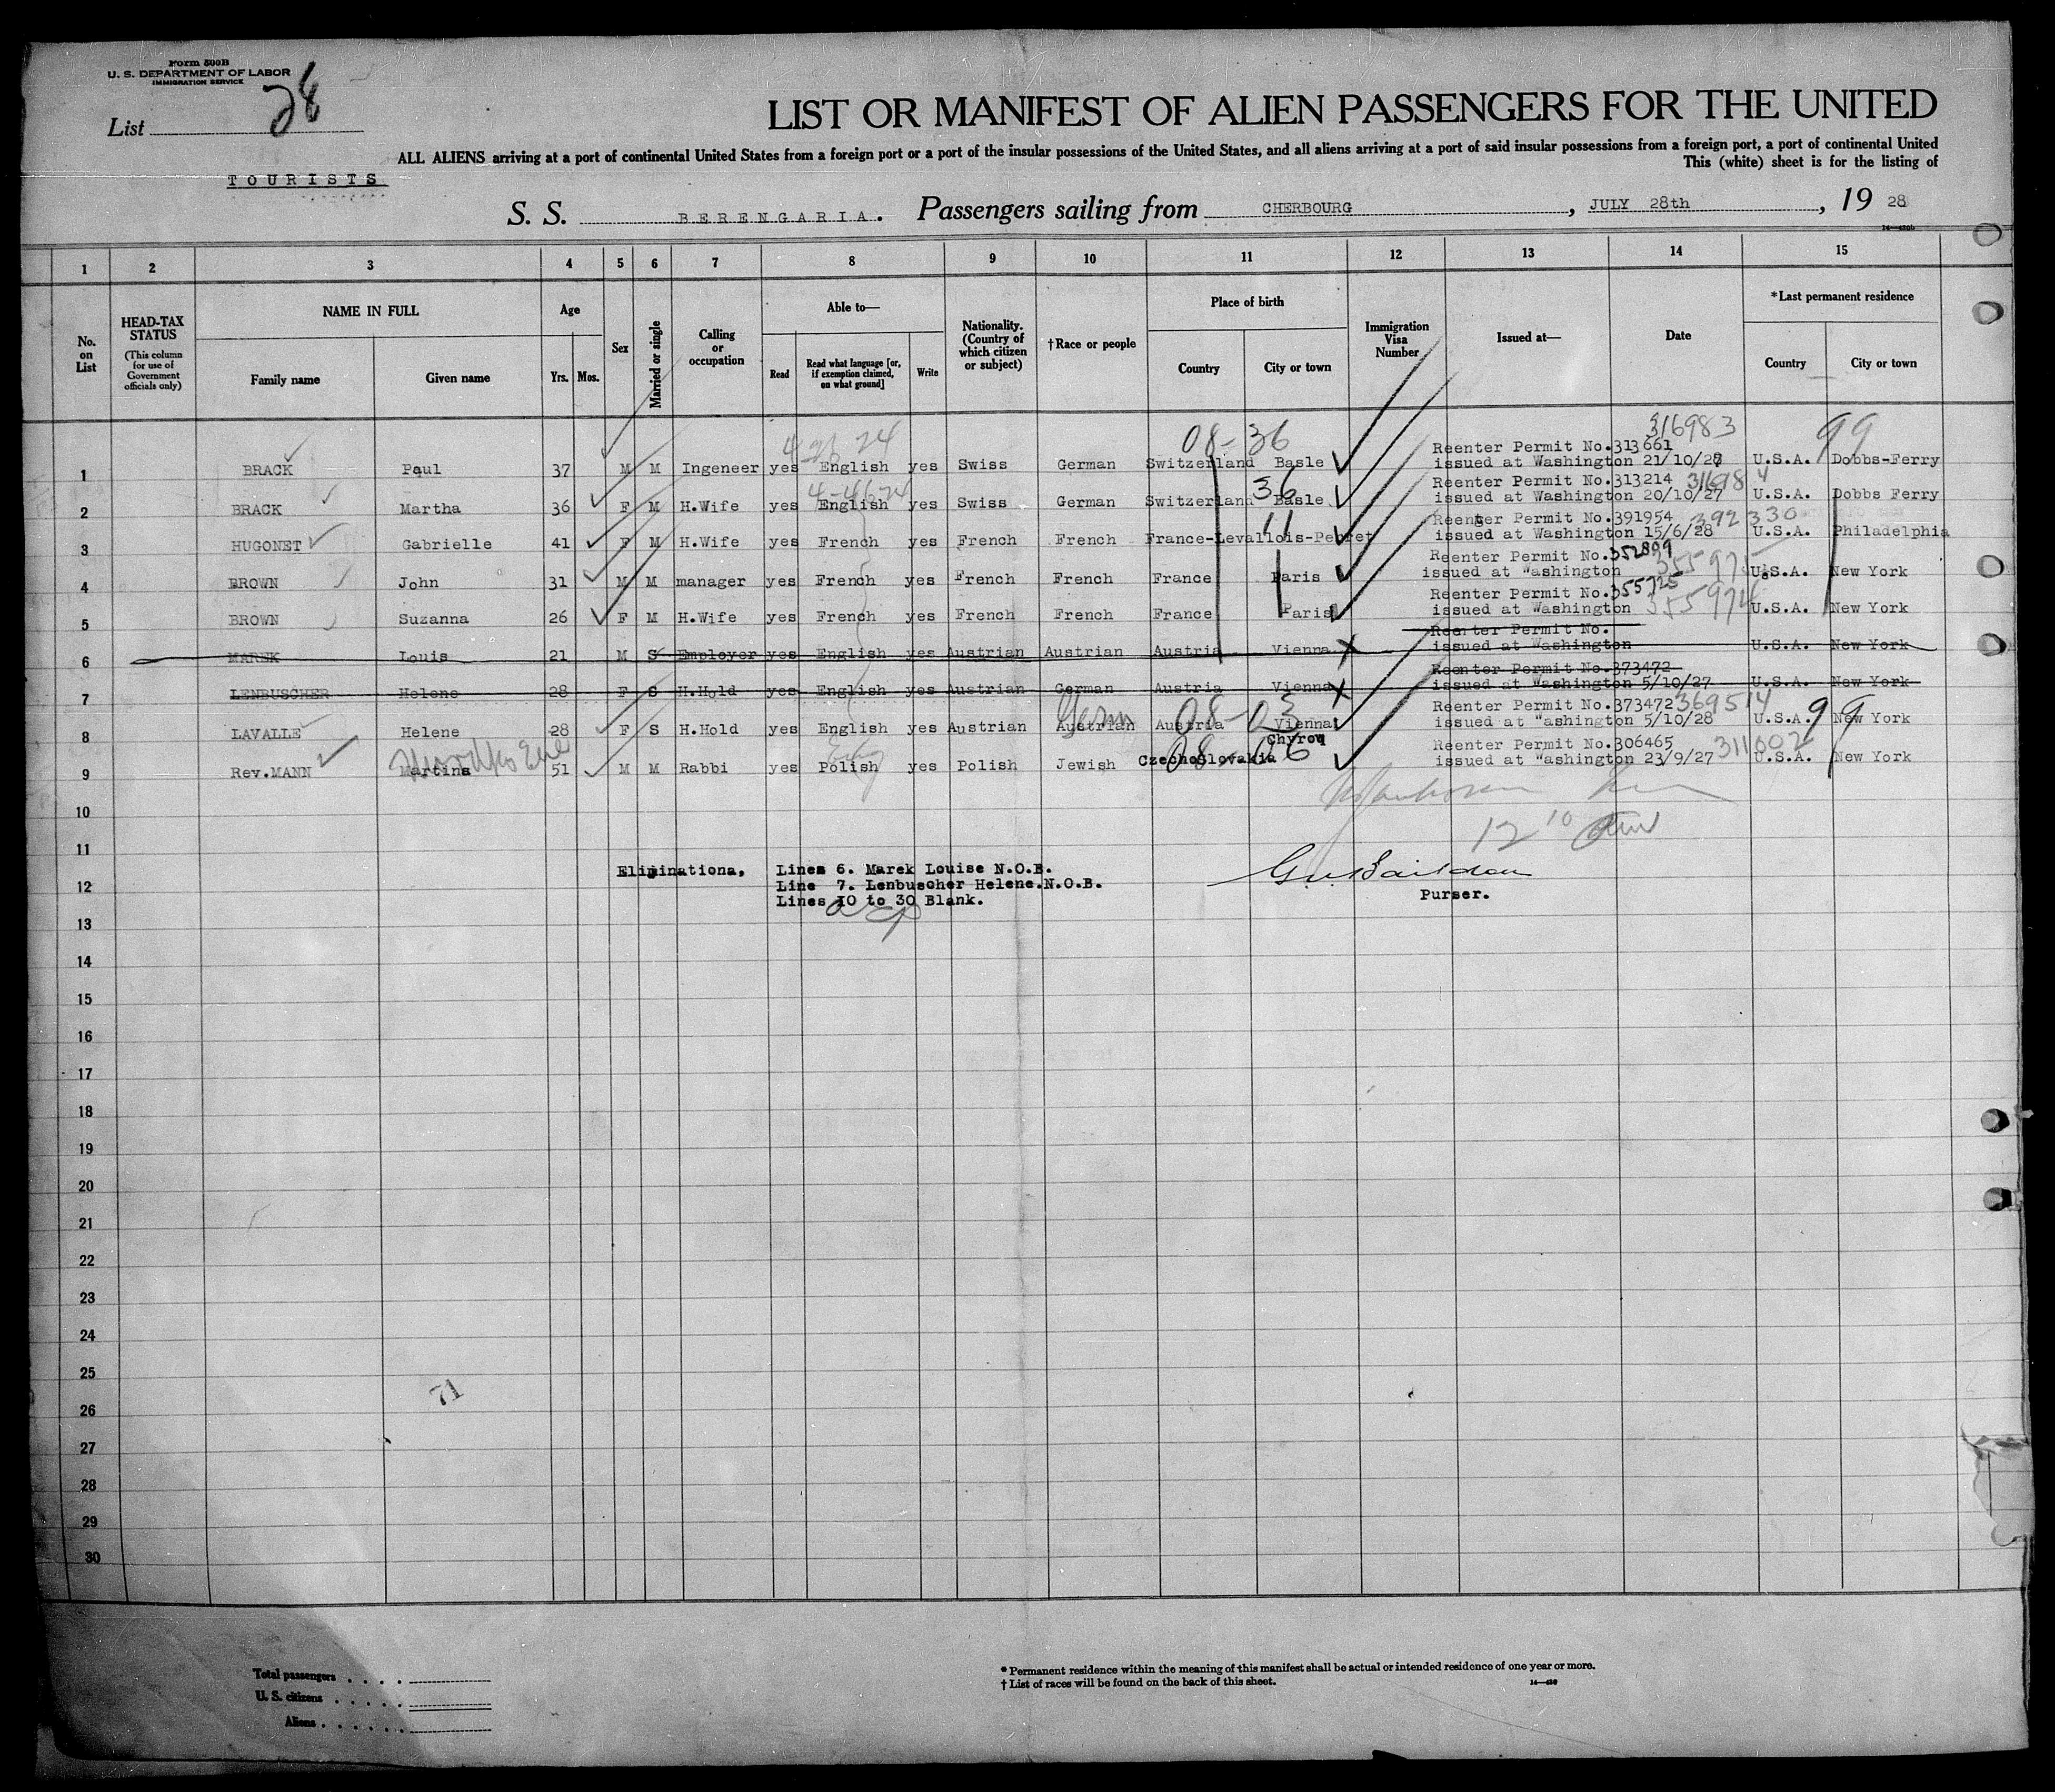 Form 500B
U. S. DEPARTMENT OF LABOR
IMMIGRATION SERVICE
List 28
LIST OR MANIFEST OF ALIEN PASSENGERS FOR THE UNITED
ALL ALIENS arriving at a port of continental United States from a foreign port or a port of the insular possessions of the United States, and all aliens arriving at a port of said insular possessions from a foreign port, a port of continental United
This (white) sheet is for the listing of
TOURISTS
S. S. BERENGARIA. Passengers sailing from CHERBOURG, JULY 28th, 19 28
1 2 3 4 5 6 7 8 9 10 11 12 13 14 15
No. on List
HEAD-TAX STATUS (This column for use of Government officials only)
NAME IN FULL
Family name Given name
Age
Yrs. Mos.
Sex
Married or single
Calling or occupation
Able to—
Read Read what language [or, if exemption claimed, on what ground] Write
Nationality. (Country of which citizen or subject)
†Race or people
Place of birth
Country City or town
Immigration Visa Number
Issued at—
Date
*Last permanent residence
Country City or town
08-36 316983 99
Reenter Permit No.313661
1 BRACK Paul 37 M M Ingeneer yes English yes Swiss German Switzerland Basle issued at Washington 21/10/27 U.S.A. Dobbs-Ferry
36 Reenter Permit No.313214 316984
2 BRACK Martha 36 F M H.Wife yes English yes Swiss German Switzerland Basle issued at Washington 20/10/27 U.S.A. Dobbs Ferry
11 Reenter Permit No.391954 392330
3 HUGONET Gabrielle 41 F M H.Wife yes French yes French French France-Levallois-Perret issued at Washington 15/6/28 U.S.A. Philadelphia
Reenter Permit No.352899
4 BROWN John 31 M M manager yes French yes French French France Paris issued at Washington 355975 U.S.A. New York
Reenter Permit No.355725
5 BROWN Suzanna 26 F M H.Wife yes French yes French French France Paris issued at Washington 355974 U.S.A. New York
Reenter Permit No.
6 MAREK Louis 21 M S Employer yes English yes Austrian Austrian Austria Vienna issued at Washington U.S.A. New York
Reenter Permit No.373472
7 LENBUSCHER Helene 28 F S H.Hold yes English yes Austrian German Austria Vienna issued at Washington 5/10/27 U.S.A. New York
Germ 08-03 Reenter Permit No.373472 369514 99
8 LAVALLE Helene 28 F S H.Hold yes English yes Austrian Austrian Austria Vienna issued at "ashington 5/10/28 U.S.A. New York
Eng Chyrow Reenter Permit No.306465 311002
9 Rev.MANN Martins 51 M M Rabbi yes Polish yes Polish Jewish Czechoslovakia 08-06 issued at "ashington 23/9/27 U.S.A. New York
10
11
12
Eliminations, Lines 6. Marek Louise N.O.B.
Line 7. Lenbuscher Helene.N.O.B.
Lines 10 to 30 Blank.
Purser.
13
14
15
16
17
18
19
20
21
22
23
24
25
71
26
27
28
29
30
Total passengers
U. S. citizens
Aliens
* Permanent residence within the meaning of this manifest shall be actual or intended residence of one year or more.
† List of races will be found on the back of this sheet.